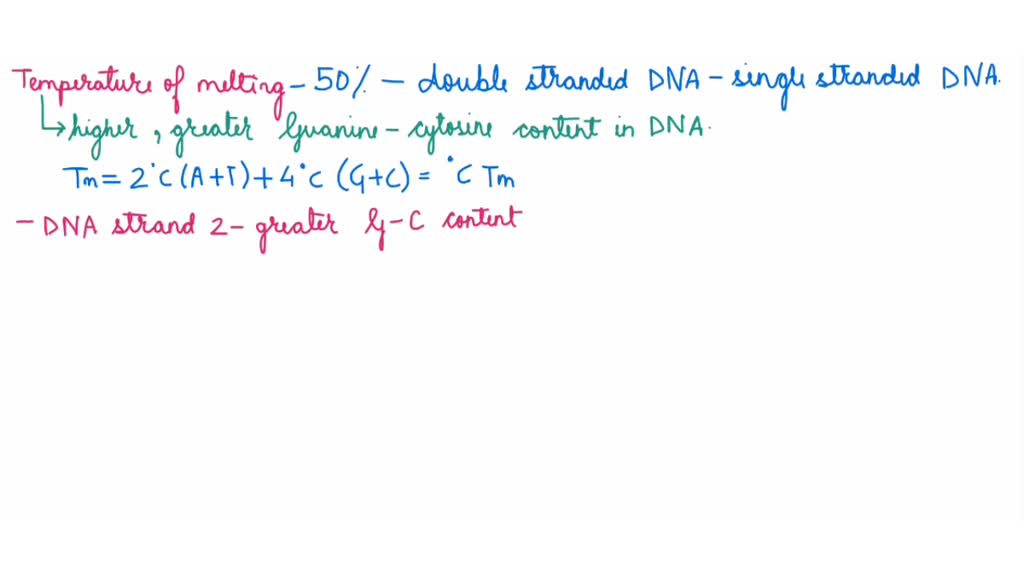 Temperature of melting - 50% - double stranded DNA - single stranded DNA.
↳ higher, greater Guanine - cytosine content in DNA.
Tm = 2°C (A+T) + 4°C (G+C) = °C Tm
- DNA strand 2 - greater G-C content